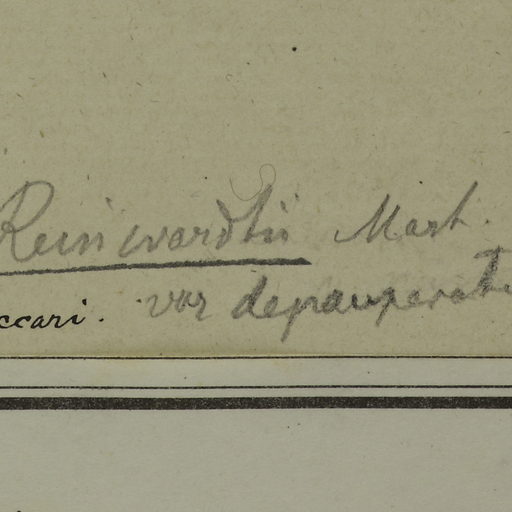 Reinwardtii Mart.
var depauperata
ccari.